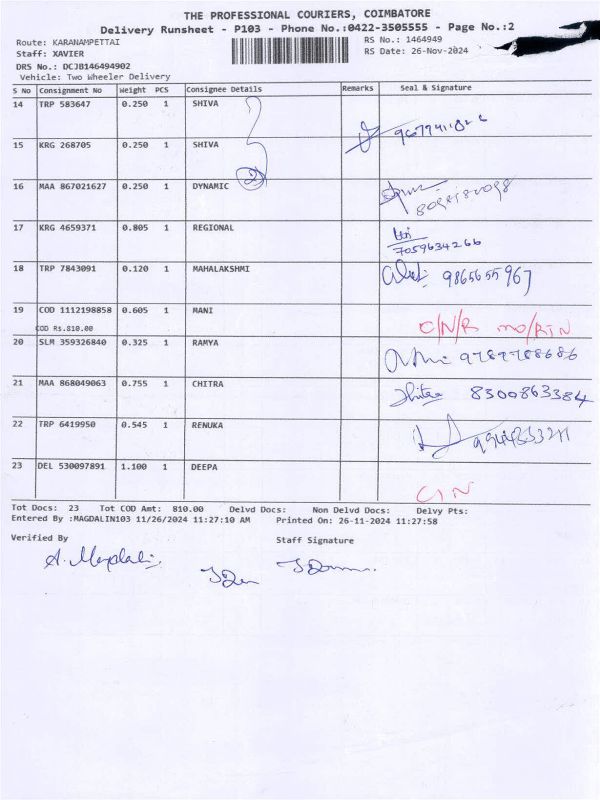 THE PROFESSIONAL COURIERS, COIMBATORE
Delivery Runsheet - P103 - Phone No.:0422-3505555 - Page No.:2
Route: KARANAMPETTAI
RS No.: 1464949
Staff: XAVIER
RS Date: 26-Nov-2024
DRS No.: DCJB146494902
Vehicle: Two Wheeler Delivery
S No Consignment No Weight PCS Consignee Details Remarks Seal & Signature
14 TRP 583647 0.250 1 SHIVA
15 KRG 268705 0.250 1 SHIVA
2
16 MAA 867021627 0.250 1 DYNAMIC
17 KRG 4659371 0.805 1 REGIONAL
7059634266
18 TRP 7843091 0.120 1 MAHALAKSHMI 9865655967
19 COD 1112198858 0.605 1 MANI
COD Rs.810.00 C/N/R
20 SLM 359326840 0.325 1 RAMYA 9789788686
21 MAA 868049063 0.755 1 CHITRA 8300863384
22 TRP 6419950 0.545 1 RENUKA
23 DEL 530097891 1.100 1 DEEPA
Tot Docs: 23 Tot COD Amt: 810.00 Delvd Docs: Non Delvd Docs: Delvy Pts:
Entered By :MAGDALIN103 11/26/2024 11:27:10 AM Printed On: 26-11-2024 11:27:58
Verified By Staff Signature